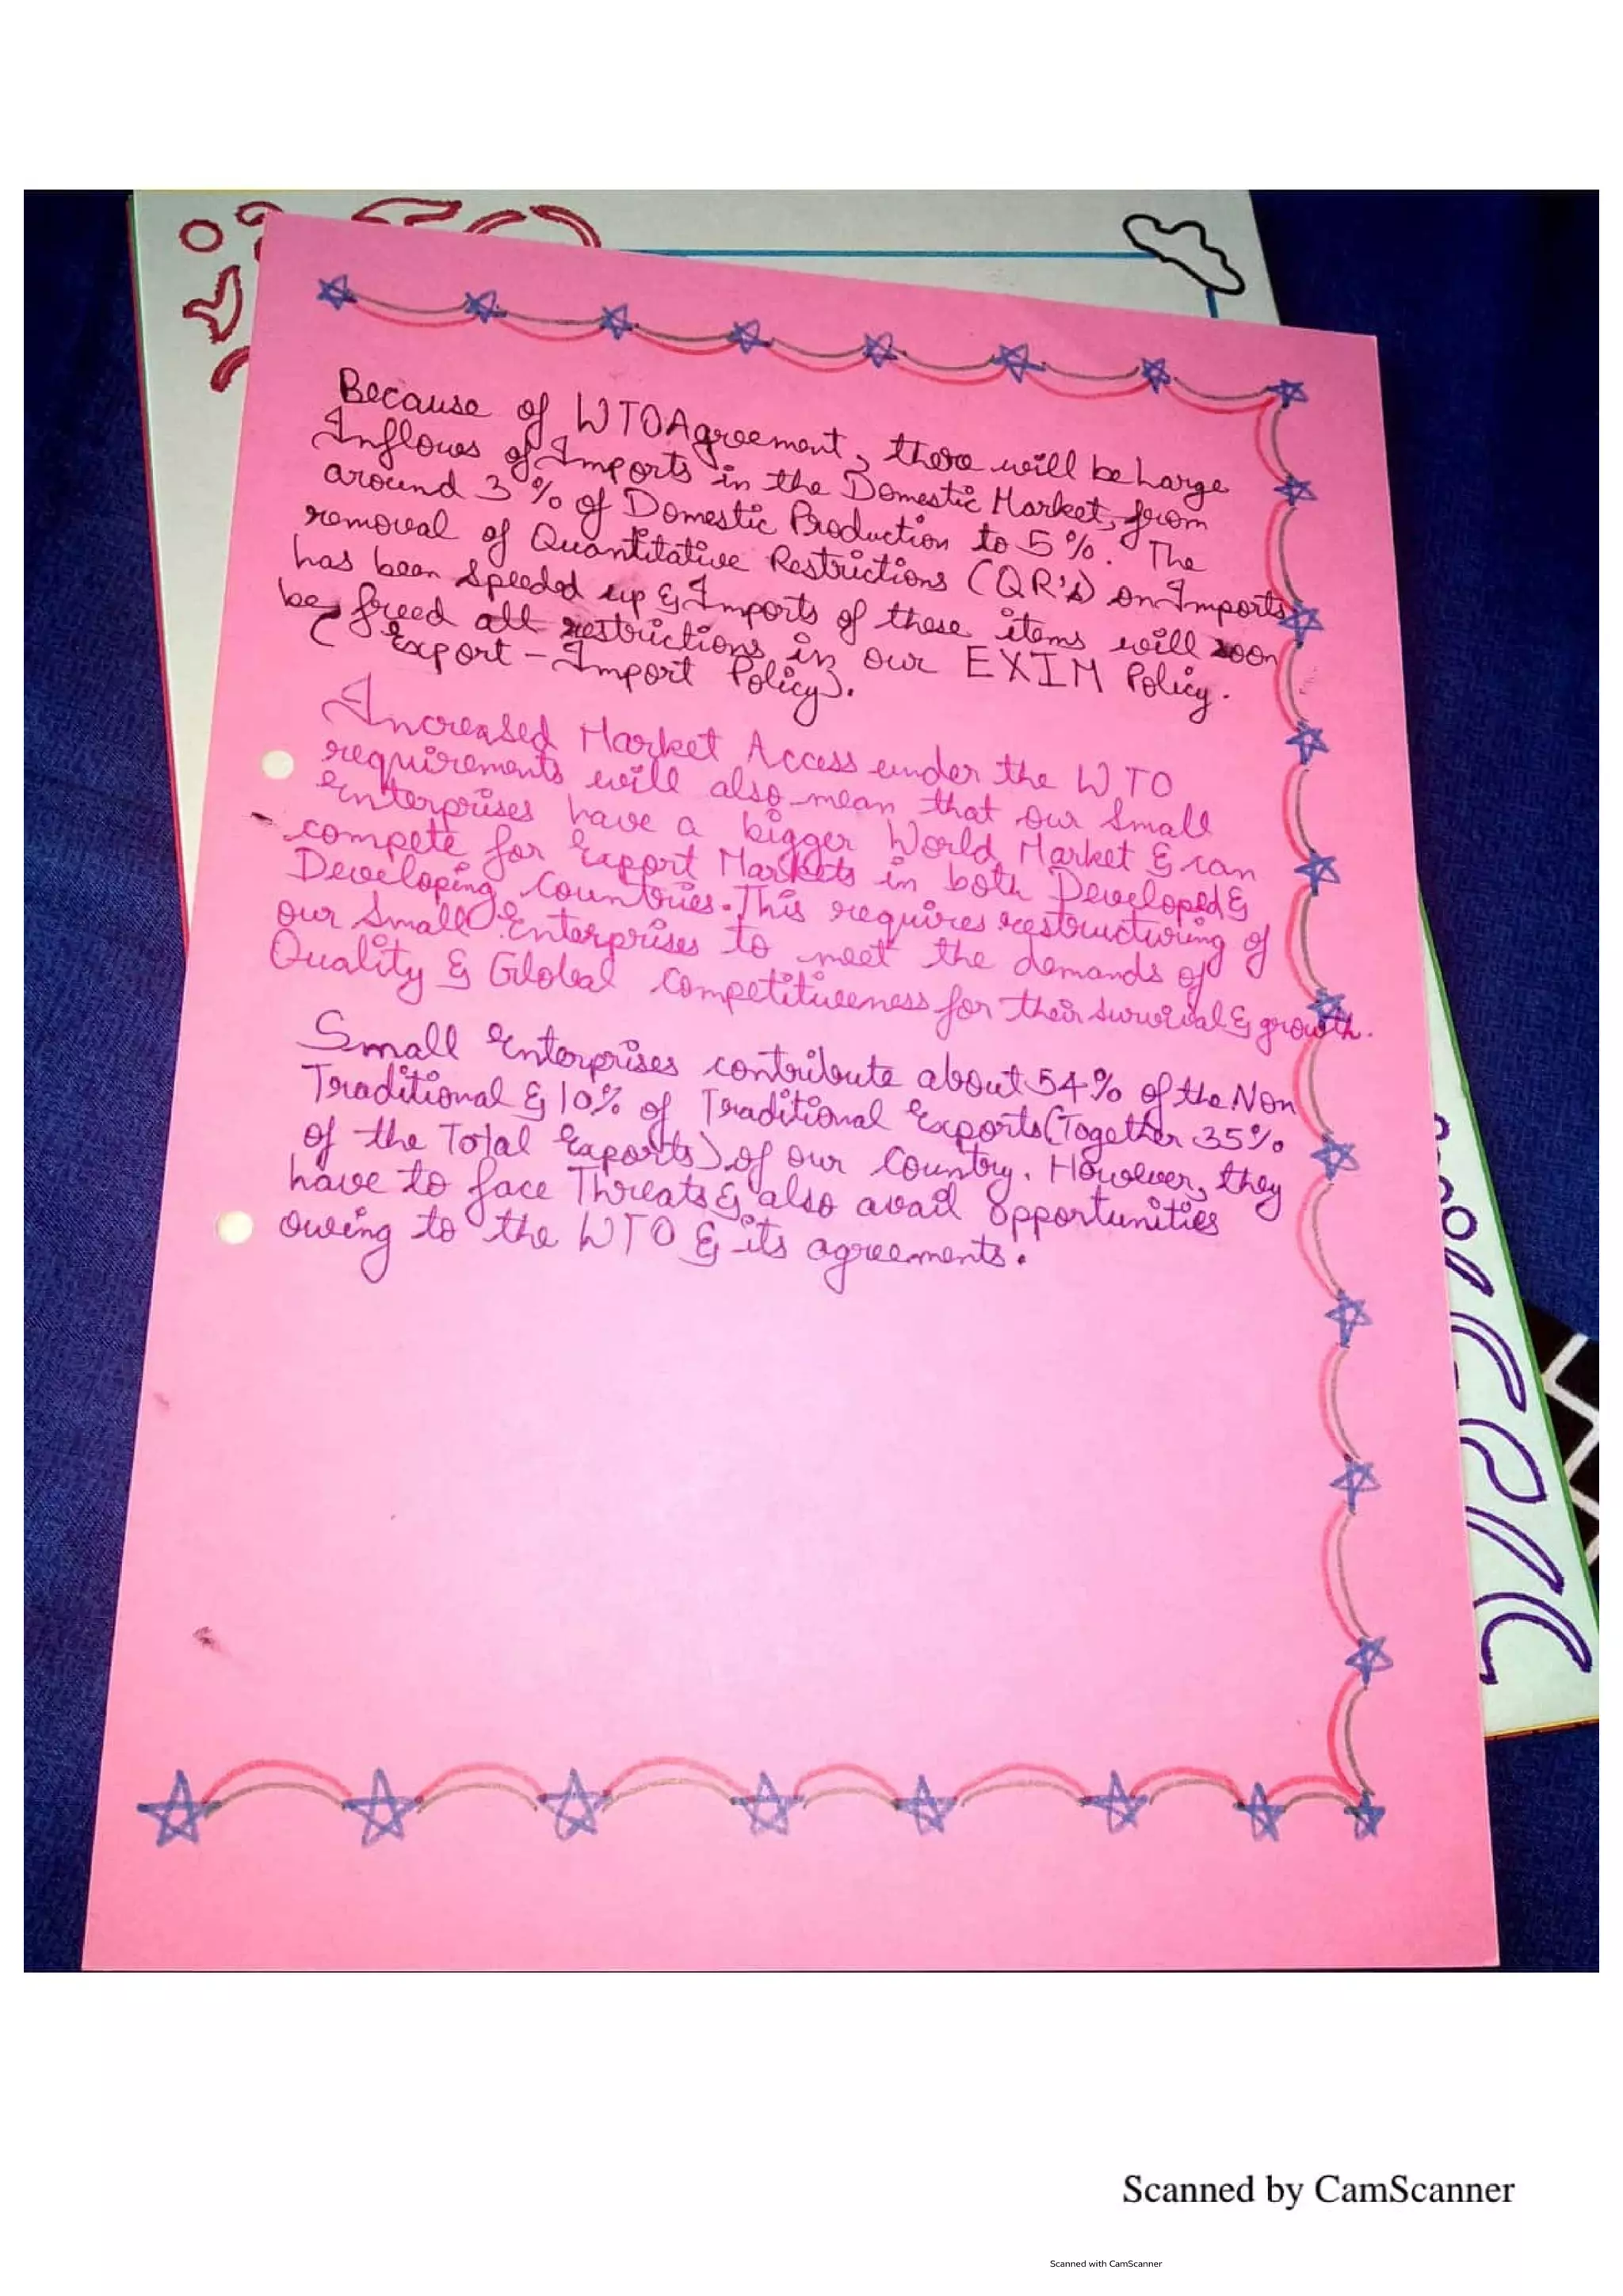 Because of WTO Agreement, there will be Large
Inflows of Imports in the Domestic Market, from
around 3% of Domestic Production to 5%. The
removal of Quantitative Restrictions (QR's) on Imports
has been speeded up & Imports of these items will soon
be freed all restrictions in our EXIM Policy.
( Export - Import Policy).
Increased Market Access under the WTO
requirements will also mean that our Small
Enterprises have a bigger World Market & can
compete for Export Markets in both Developed &
Developing Countries. This requires restructuring of
our Small Enterprises to meet the demands of
Quality & Global Competitiveness for their survival & growth.
Small Enterprises contribute about 54% of the Non
Traditional & 10% of Traditional Exports (Together 35%
of the Total Exports) of our Country. However, they
have to face Threats & also avail opportunities
owing to the WTO & its agreements.
Scanned by CamScanner
Scanned with CamScanner